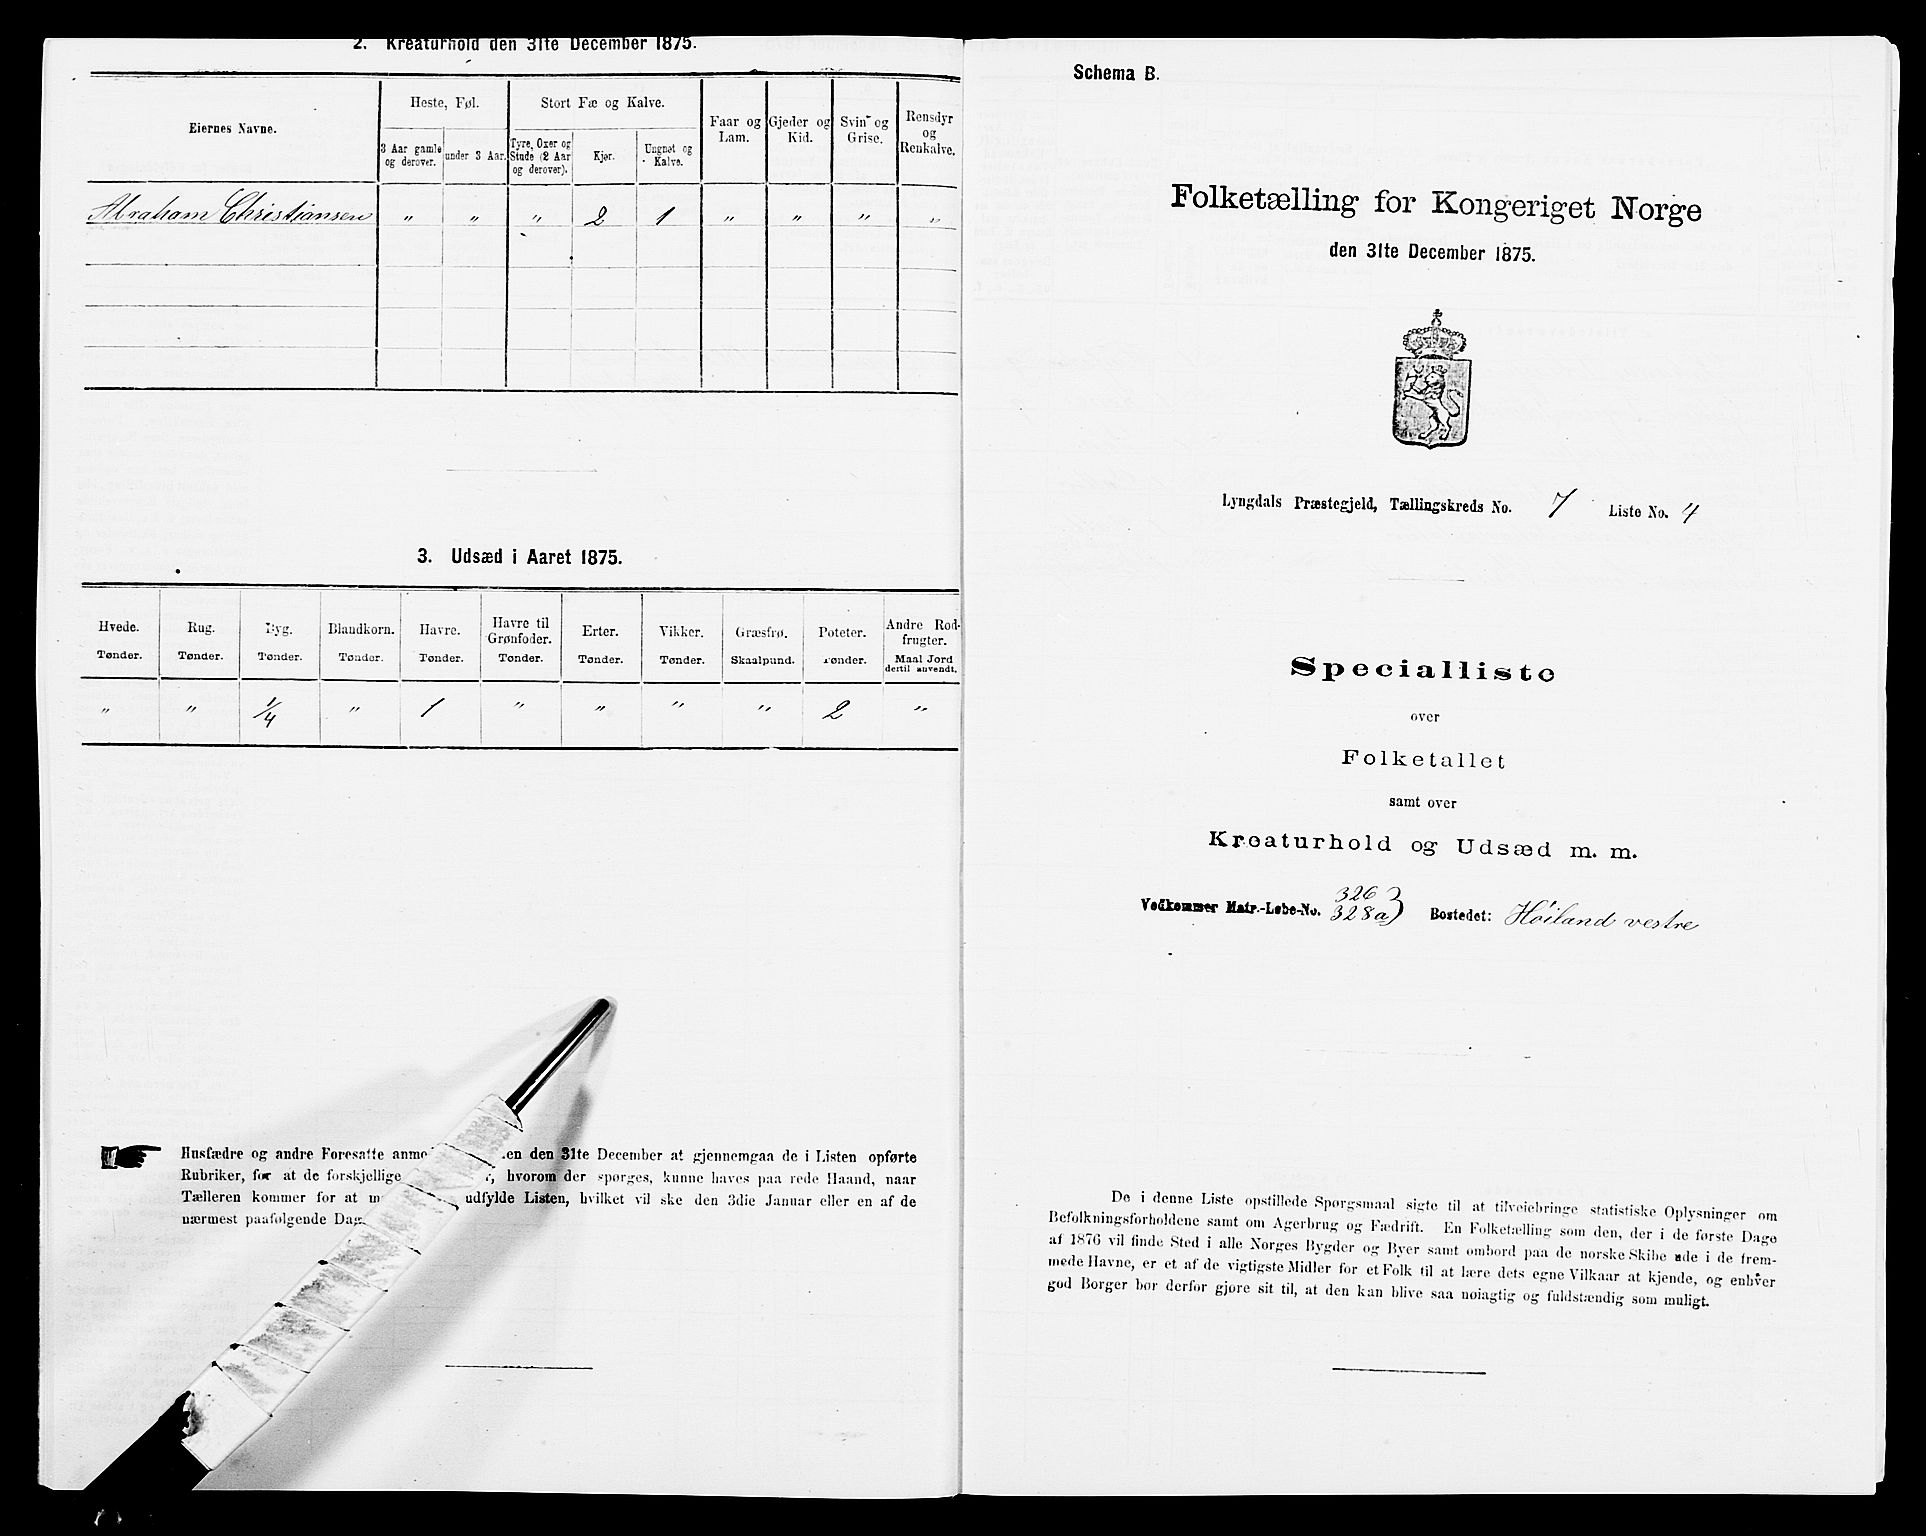 2. Kreaturhold den 31te December 1875.
Eiernes Navne.
Heste, Føl.
Stort Fæ og Kalve.
Faar og Lam.
Gjeder og Kid.
Svin og Grise.
Rensdyr og Renkalve.
3 Aar gamle og derover.
under 3 Aar.
Tyre, Oxer og Stude (2 Aar og derover).
Kjør.
Ungnøt og Kalve.
Abraham Christiansen " " " 2 1 " " " "
3. Udsæd i Aaret 1875.
Hvede. Rug. Byg. Blandkorn. Havre. Havre til Grønfoder. Erter. Vikker. Græsfrø. Poteter. Andre Rodfrugter.
Tønder. Tønder. Tønder. Tønder. Tønder. Tønder. Tønder. Tønder. Skaalpund. Tønder. Maal Jord dertil anvendt.
" " 1/4 " 1 " " " " 2 "
Husfædre og andre Foresatte anmo en den 31te December at gjennemgaa de i Listen opførte
Rubriker, for at de forskjellige r, hvorom der spørges, kunne haves paa rede Haand, naar
Tælleren kommer for at udfylde Listen, hvilket vil ske den 3die Januar eller en af de
nærmest paafølgende Dag
Schema B.
Folketælling for Kongeriget Norge
den 31te December 1875.
Lyngdals Præstegjeld, Tællingskreds No. 7 Liste No. 4
Specialliste
over
Folketallet
samt over
Kreaturhold og Udsæd m. m.
Vedkommer Matr.-Løbe-No. 326 328a Bostedet: Høiland vestre
De i denne Liste opstillede Spørgsmaal sigte til at tilveiebringe statistiske Oplysninger om
Befolkningsforholdene samt om Agerbrug og Fædrift. En Folketælling som den, der i de første Dage
af 1876 vil finde Sted i alle Norges Bygder og Byer samt ombord paa de norske Skibe ude i de frem-
mede Havne, er et af de vigtigste Midler for et Folk til at lære dets egne Vilkaar at kjende, og enhver
god Borger bør derfor gjøre sit til, at den kan blive saa nøiagtig og fuldstændig som muligt.